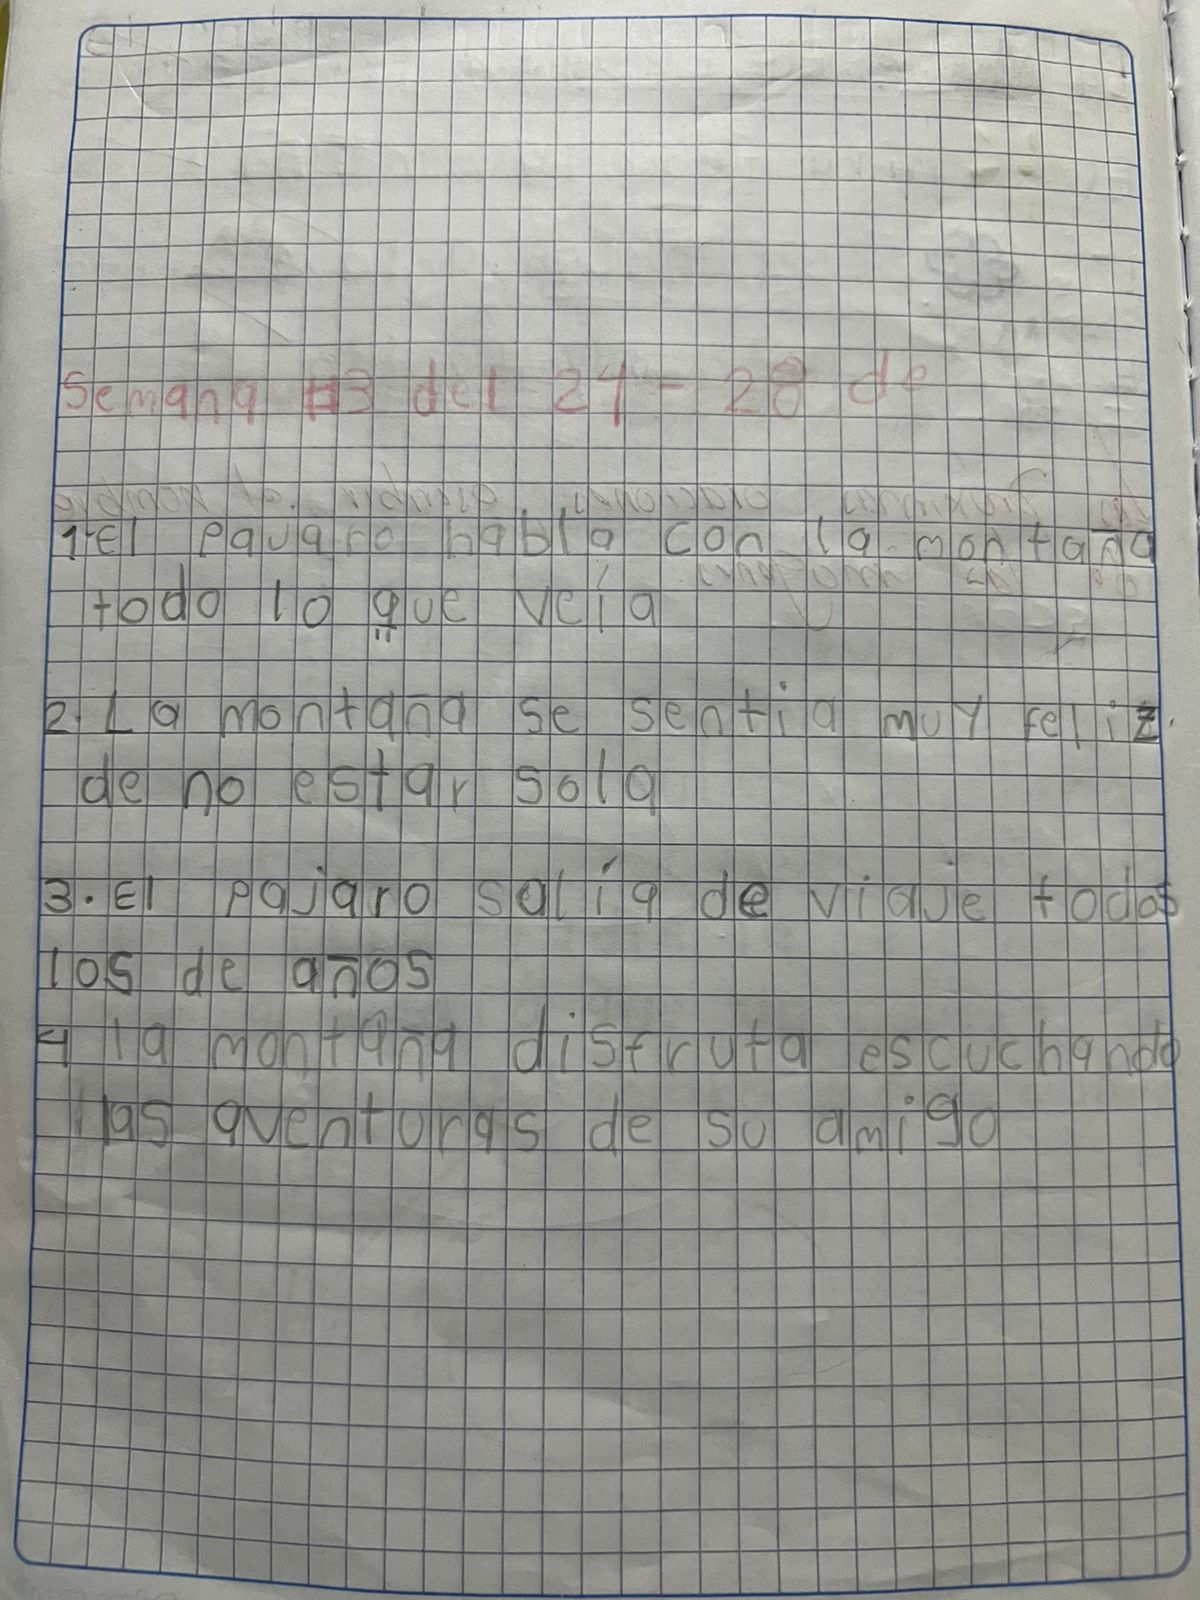 Semana #3 del 24 - 28 de
1.El pauaro habla con la montaña
todo lo que veía
2. La montaña se sentia muy feliz
de no estar sola
3. El pajaro salía de viaje todos
los de años
4 la montaña disfruta escuchando
las aventuras de su amigo